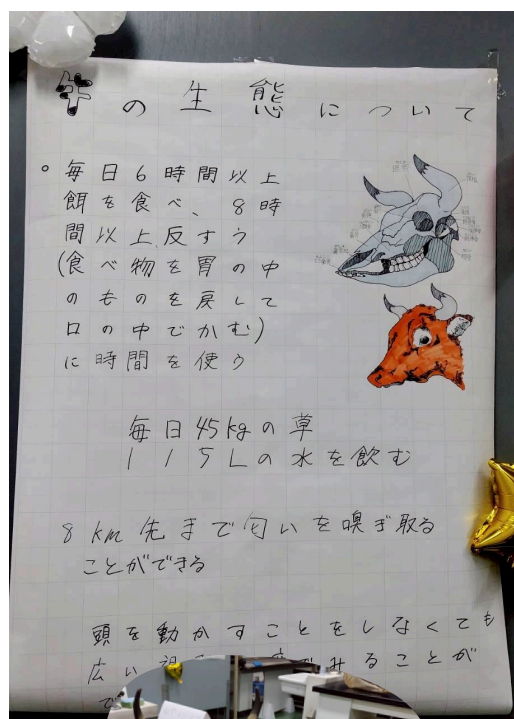 牛の生態について
。毎日6時間以上
餌を食べ、8時
間以上反すう
(食べ物を胃の中
のものを戻して
口の中でかむ)
に時間を使う
毎日45kgの草
115Lの水を飲む
8km先まで匂いを嗅ぎ取る
ことができる
頭を動かすことをしなくても
広い
でみることが
で